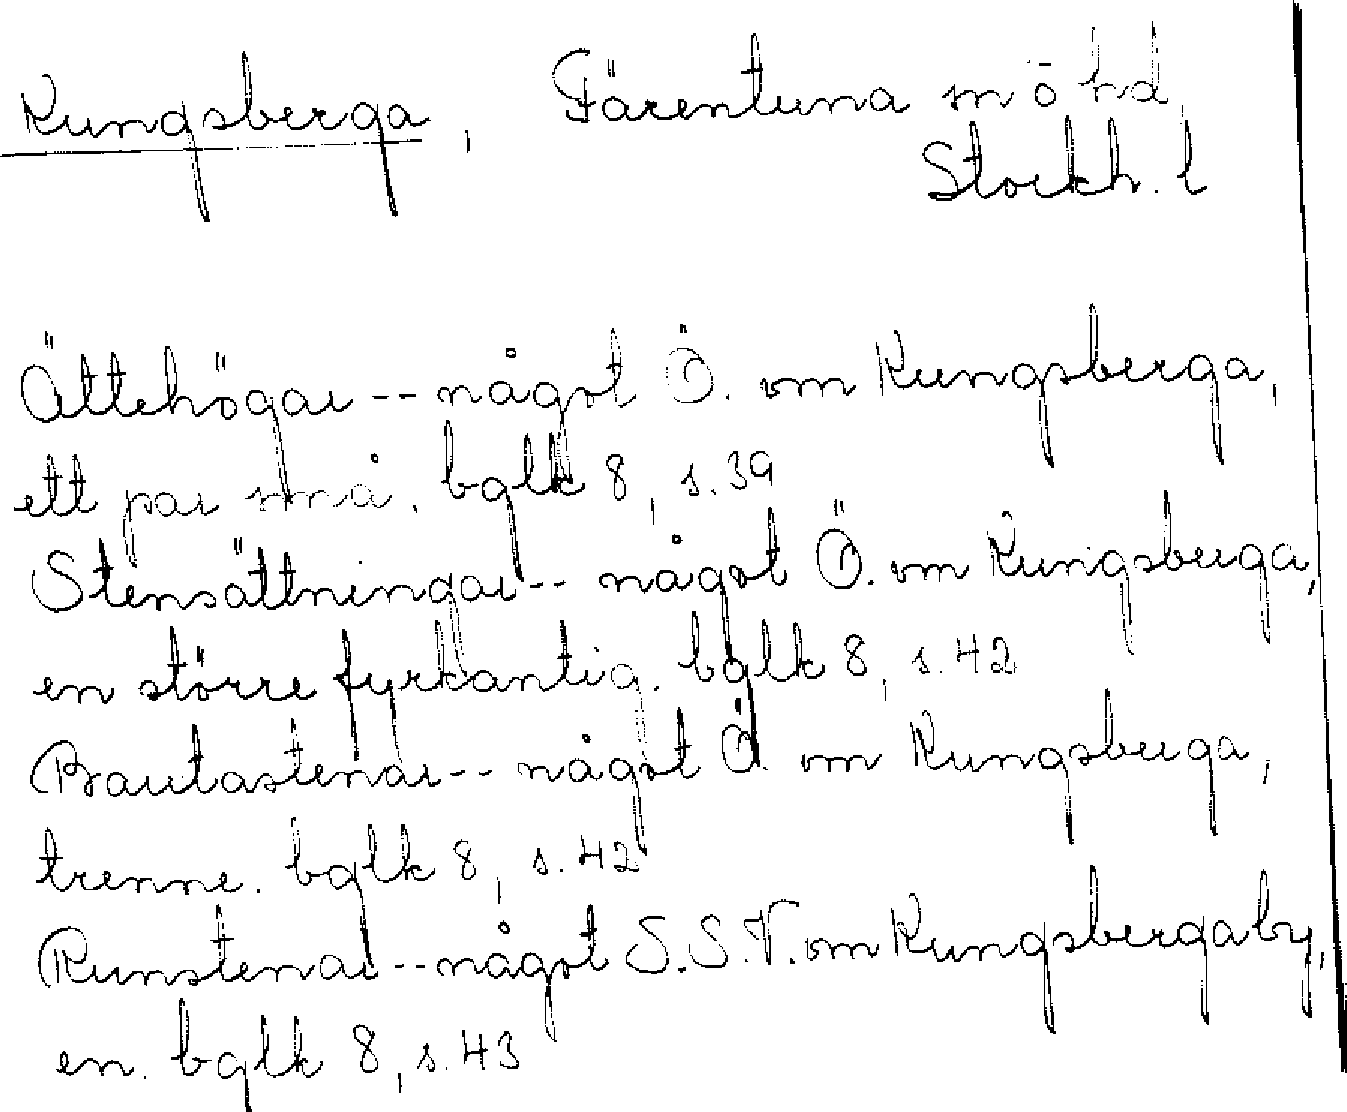 Kungsberga, Färentuna sn ö hd,
Stockh. l
Ättehögar -- något Ö. om Kungsberga,
ett par små. bglk 8, s. 39
Stensättningar -- något Ö. om Kungsberga,
en större fyrkantig. bglk 8, s. 42
Bautastenar -- något Ö. om Kungsberga,
trenne. bglk 8, s. 42
Runstenar -- något S.S.V. om Kungsbergaby,
en. bglk 8, s. 43